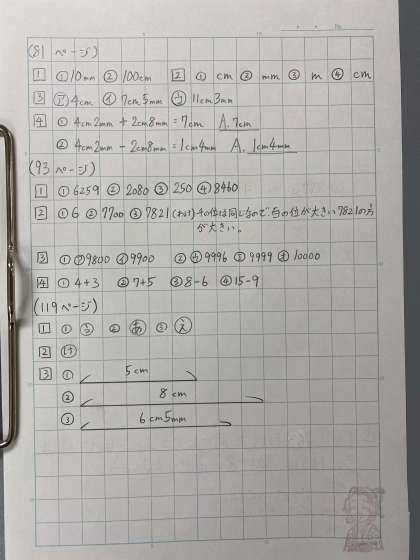 (81 ページ)
1 ①10mm ②100cm 2 ① cm ② mm ③ m ④ cm
3 ㋐4cm ㋑7cm5mm ㋒11cm3mm
4 ①4cm2mm + 2cm8mm = 7cm A.7cm
②4cm2mm - 2cm8mm = 1cm4mm A. 1cm4mm
(93 ページ)
1 ①6259 ②2080 ③250 ④8460
2 ①6 ②7700 ③7821 (わけ)千の位は同じなので、百の位が大きい7821の方
が大きい。
3 ①㋐9800 ㋑9900 ②㋒9996 ㋓9999 ㋔10000
4 ①4+3 ②7+5 ③8-6 ④15-9
(119ページ)
1 ① ② あ ③ え
2 け
3 ① 5cm
② 8cm
③ 6cm5mm